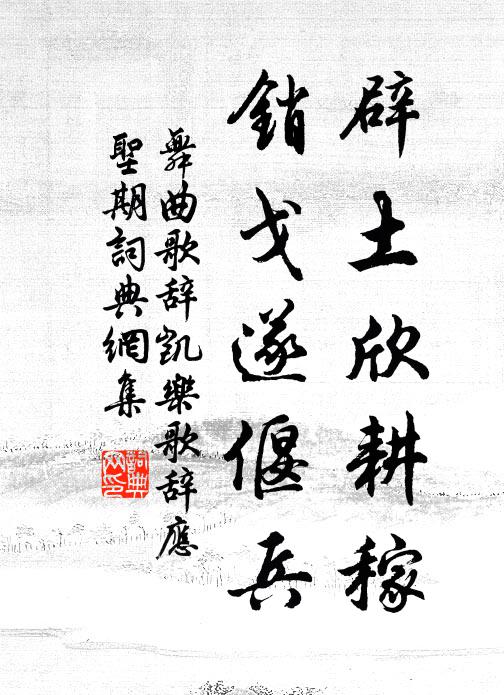 辟土欣耕稼
銷戈遂偃兵
舞曲歌辞凱樂歌辞應
聖期詞典網集
詞典网印